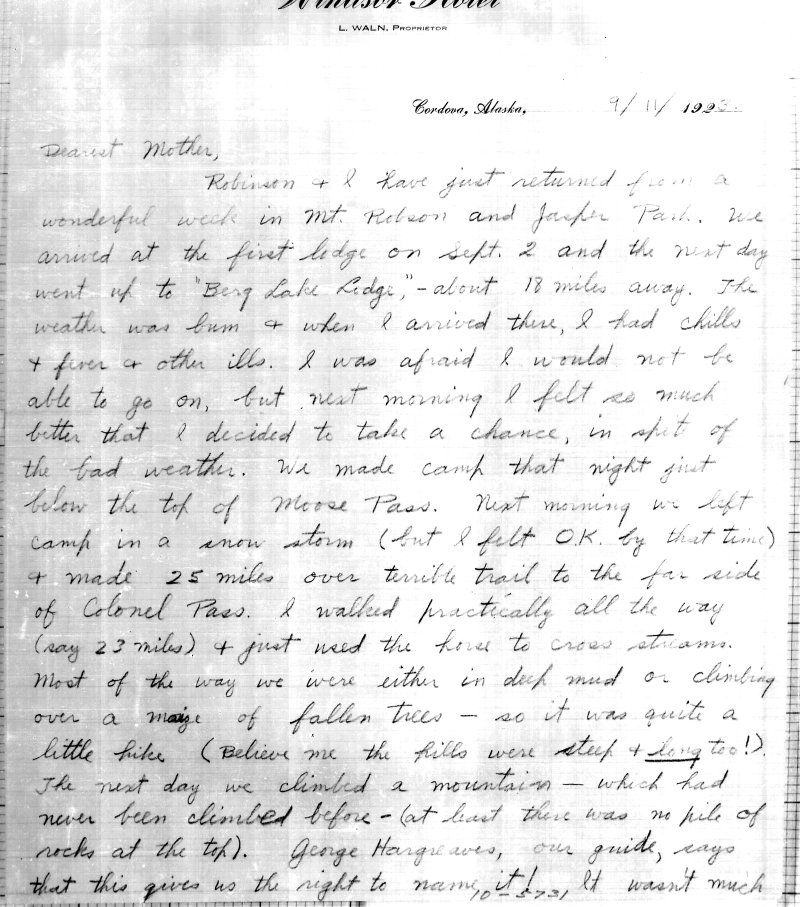 Windsor Hotel
L. WALN, PROPRIETOR
Cordova, Alaska, 9/11/1923.
Dearest Mother,
Robinson & I have just returned from a
wonderful week in Mt. Robson and Jasper Park. We
arrived at the first lodge on Sept. 2 and the next day
went up to "Berg Lake Lodge," - about 18 miles away. The
weather was bum & when I arrived there, I had chills
& fever & other ills. I was afraid I would not be
able to go on, but next morning I felt so much
better that I decided to take a chance, in spite of
the bad weather. We made camp that night just
below the top of Moose Pass. Next morning we left
camp in a snow storm (but I felt O.K. by that time)
& made 25 miles over terrible trail to the far side
of Colonel Pass. I walked practically all the way
(say 23 miles) & just used the horse to cross streams.
Most of the way we were either in deep mud or climbing
over a maize of fallen trees - so it was quite a
little hike (Believe me the hills were steep & long too!).
The next day we climbed a mountain - which had
never been climbed before - (at least there was no pile of
rocks at the top). George Hargreaves, our guide, says
that this gives us the right to name it! It wasn't much
10-5731